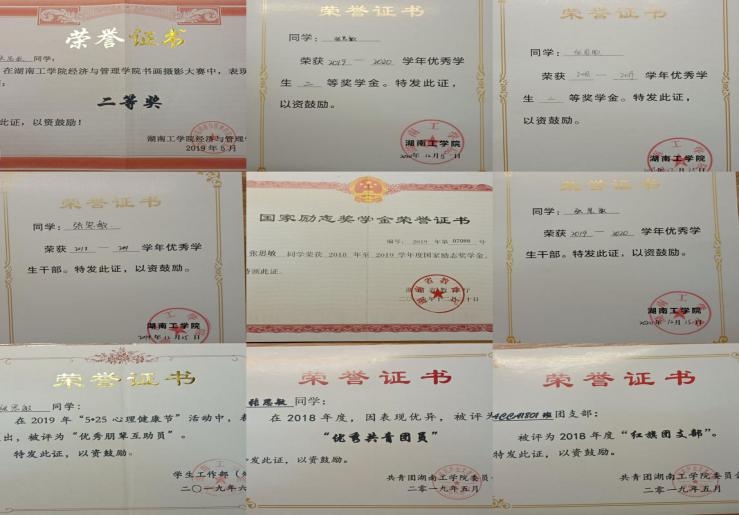 荣誉证书
同学：
在湖南工学院经济与管理学院书画摄影大赛中，表现
二等奖
此证，以资鼓励！
湖南工学院经济与管理
2019年5月
荣誉证书
同学：张思敏
荣获2019—2020学年优秀学
生二等奖学金。特发此证，
以资鼓励。
湖南工学院
荣誉证书
同学：
荣获2018—2019学年优秀学
生二等奖学金。特发此证，
以资鼓励。
湖南工学院
荣誉证书
同学：张思敏
荣获2018—2019学年优秀学
生干部。特发此证，以资鼓励。
湖南工学院
国家励志奖学金荣誉证书
编号：2019年第07080号
张思敏 同学荣获2018年至2019学年度国家励志奖学金，
特颁此证。
荣誉证书
同学：张思敏
荣获2019—2020学年优秀学
生干部。特发此证，以资鼓励。
湖南工学院
2020年12月15日
荣誉证书
张思敏 同学：
在2019年“5•25心理健康节”活动中，表
出，被评为“优秀朋辈互助员”。
特发此证，以资鼓励。
学生工作部（处
二〇一九年六
荣誉证书
张思敏 同学：
在2018年度，因表现优异，被评为
“优秀共青团员”
发此证，以资鼓励。
共青团湖南工学院委员
二零一九年五月
荣誉证书
ACCA1801班团支部：
被评为2018年度“红旗团支部”。
特发此证，以资鼓励。
共青团湖南工学院委员会
二零一九年五月